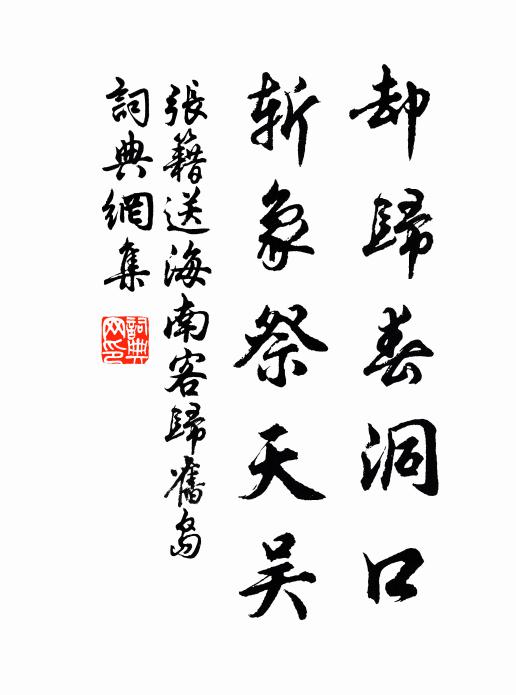 却歸春洞口
斬象祭天吴
張籍送海南客歸舊島
詞典網集
詞典網印